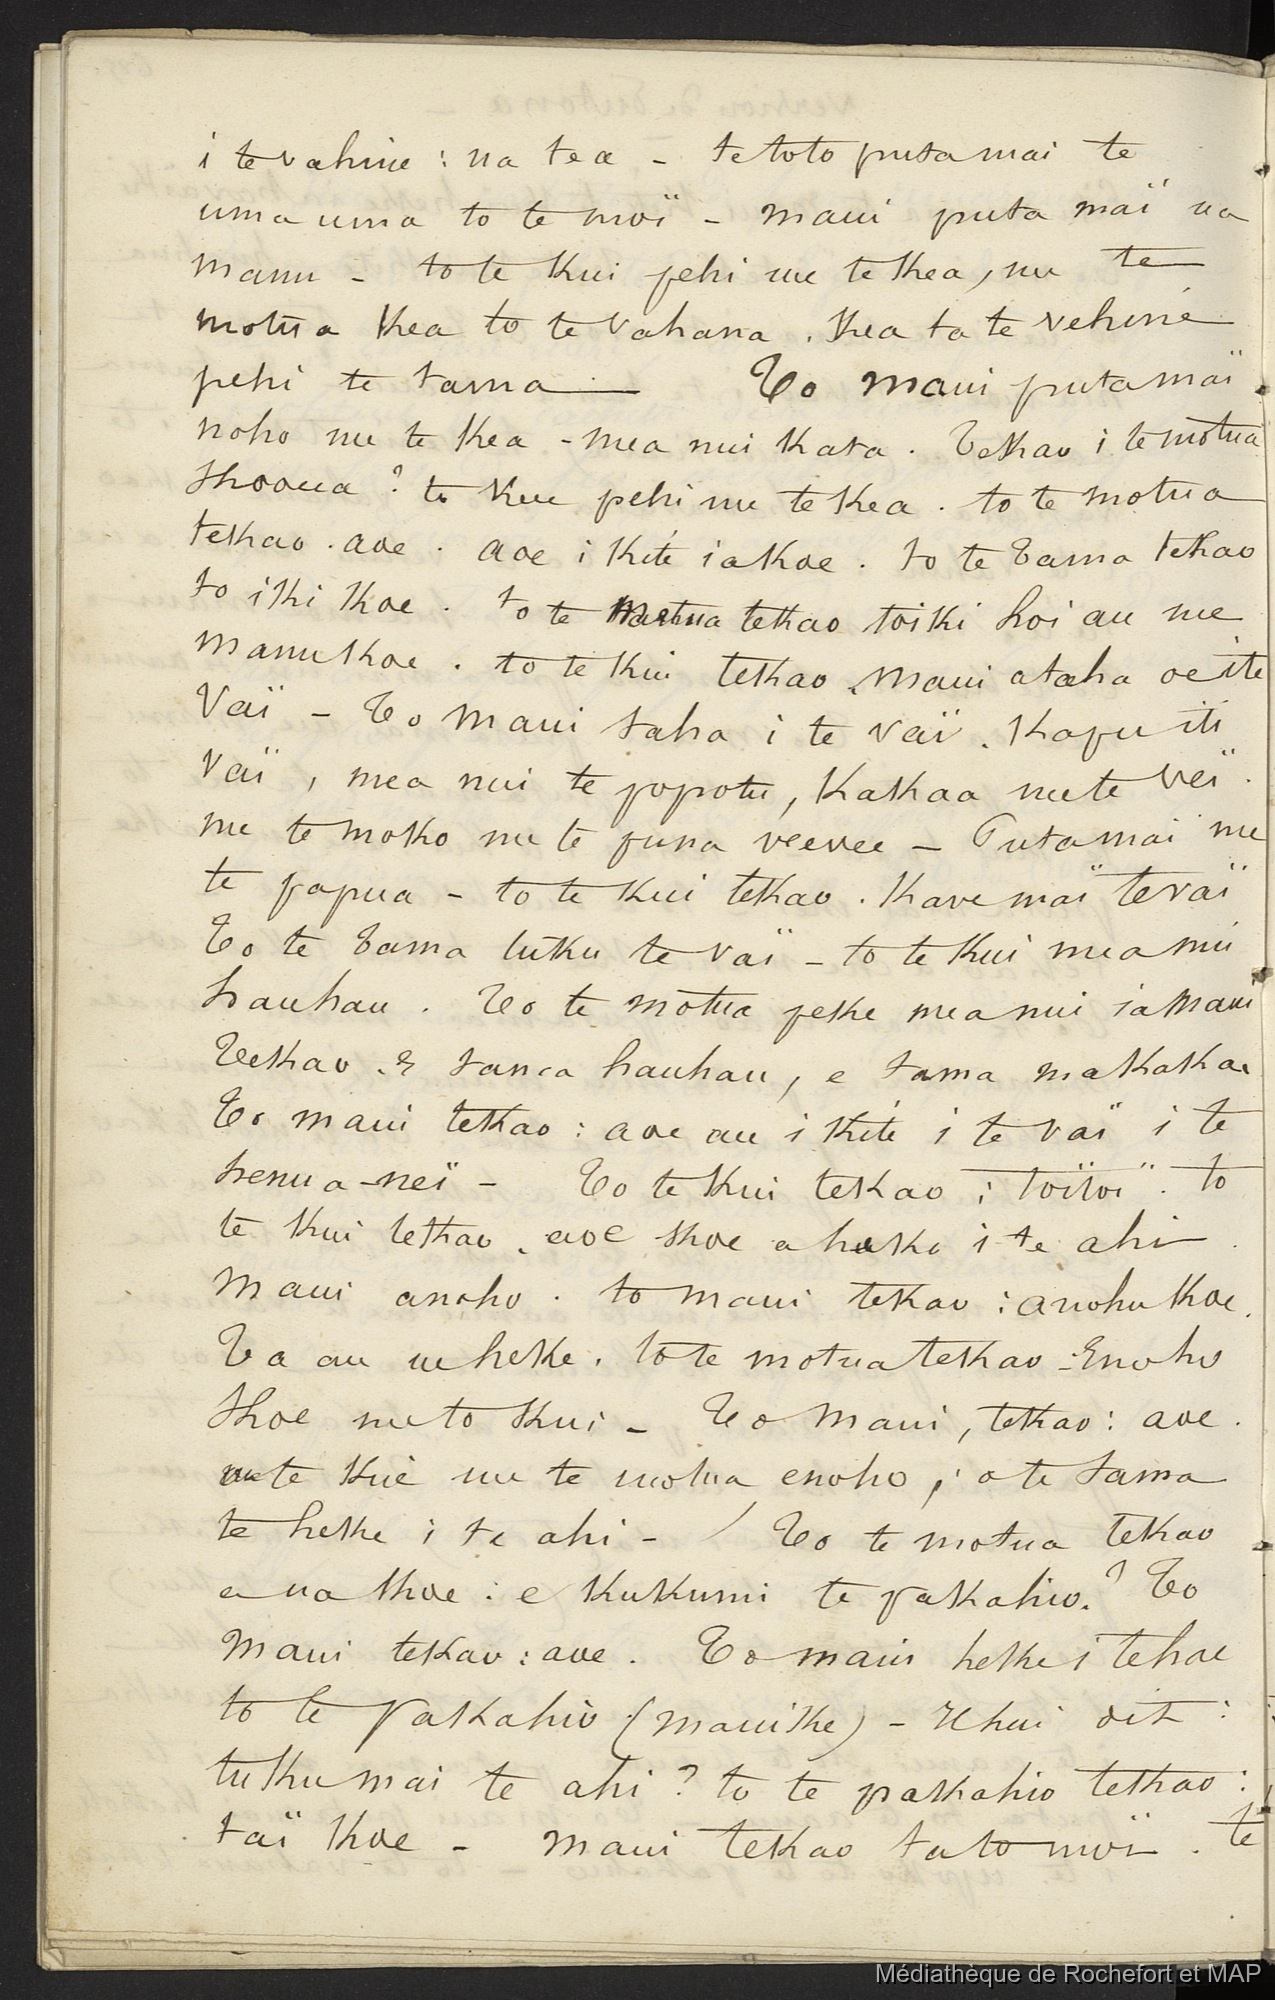 i te vahine : na tea - te toto puta mai te
uma uma to te moï - maui puta maï na
manu - to te kui pehi me te kea, me te
motua kea to te vahana . kea ta te vehine
pehi te tama — To maui puta maï
noho me te kea - mea nui kata . Tekao i te motua
kooua ? to kue pehi me te kea . to te motua
tekao . aoe . aoe i kite ia koe . to te tama tekao
to iki koe . to te motua tekao toiki hoi au me
manu koe . to te kui tekao . maui ataha oe ite
Vaï - To maui taha i te vaï . kapu iti
vaï , mea nui te popotu, kakaa me te veï .
me te moko me te puna veevee - Puta mai me
te papua - to te kui tekao . kave maï te vaï
To te tama tuku te vaï - to te kui mea nui
hauhau . To te motua peke mea nui ia Maui
Tekao . E tama hauhau, e tama makakae
To maui tekao : aoe au i kite i te vaï i te
henua-neï - To te kui tekao : toïtoï . to
te kui tekao . aoe koe a heke i te ahi .
Maui anoho . to maui tekao : anoho koe .
Ta au ue heke . to te motua tekao - Enoho
koe me to kui - To Maui, tekao : aoe .
me te kui me te motua enoho ; o te tama
te heke i te ahi - / To te motua tekao
ena koe : e kukumi te pakahio ? To
Maui tekao : aoe . To maui heke i tehae
to te pakahio (mauike) - Ehui dit :
tuku mai te ahi ? to te pakahio tekao :
taï koe - maui tekao ta to moï . te
Médiathèque de Rochefort et MAP